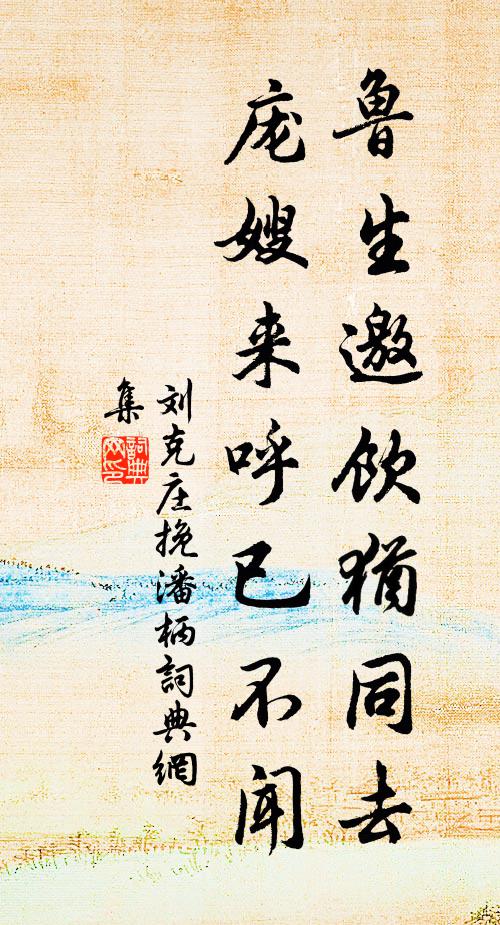 鲁生邀饮犹同去
庞嫂来呼已不闻
刘克庄挽潘柄詞典網
集
詞典网印